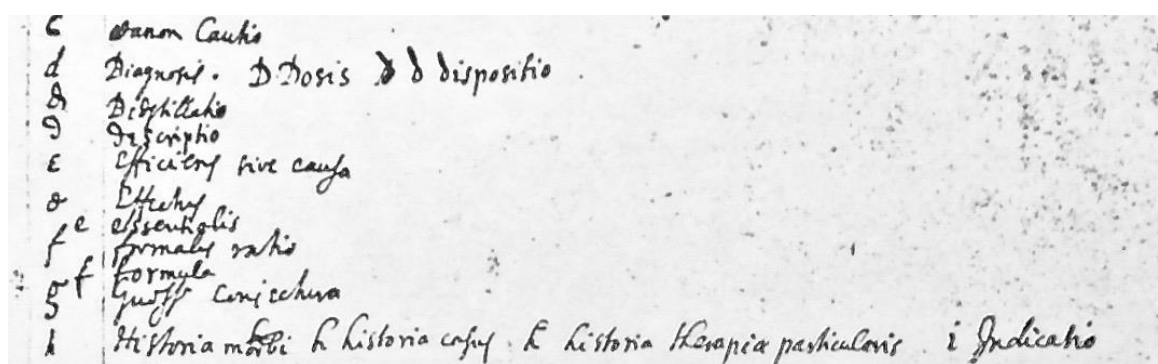 C Canon Cautio
d Diagnosis. D Dosis d d dispositio
Distillatio
Descriptio
ε Efficiens sive causa
Effectus
e essentialis
f formalis ratio
f formula
g conjectura
h Historia morbi h historia casus h historia therapiæ particularis i Indicatio